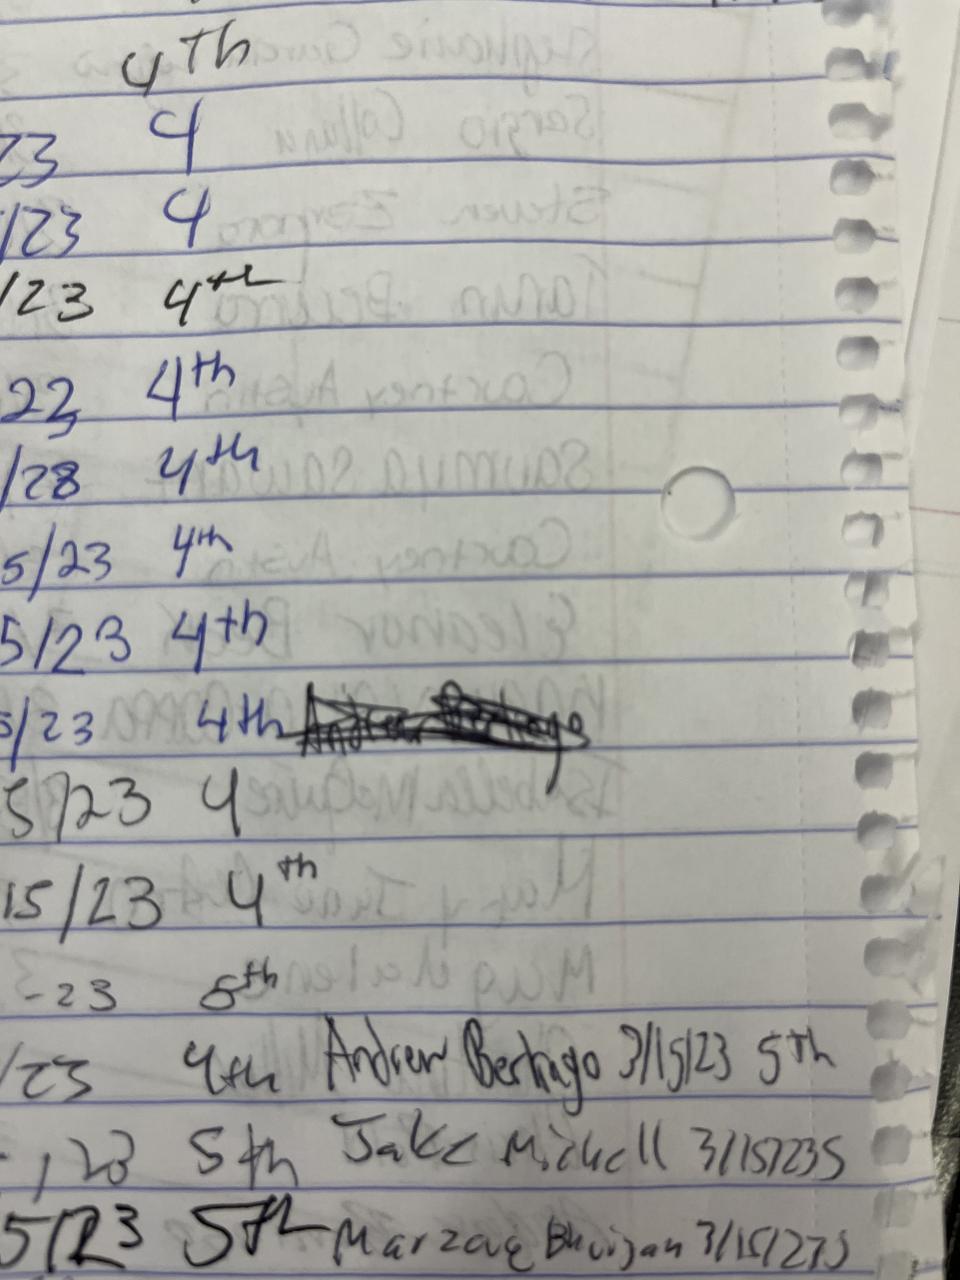 4th
23 4
/23 4
/23 4th
22 4th
/28 4th
5/23 4th
5/23 4th
5/23 4th
5/23 4
15/23 4th
-23 5th
/23 4th Andrew 3/15/23 5th
5th Jake Michell 3/15/23 5
5/23 5th 3/15/23 5